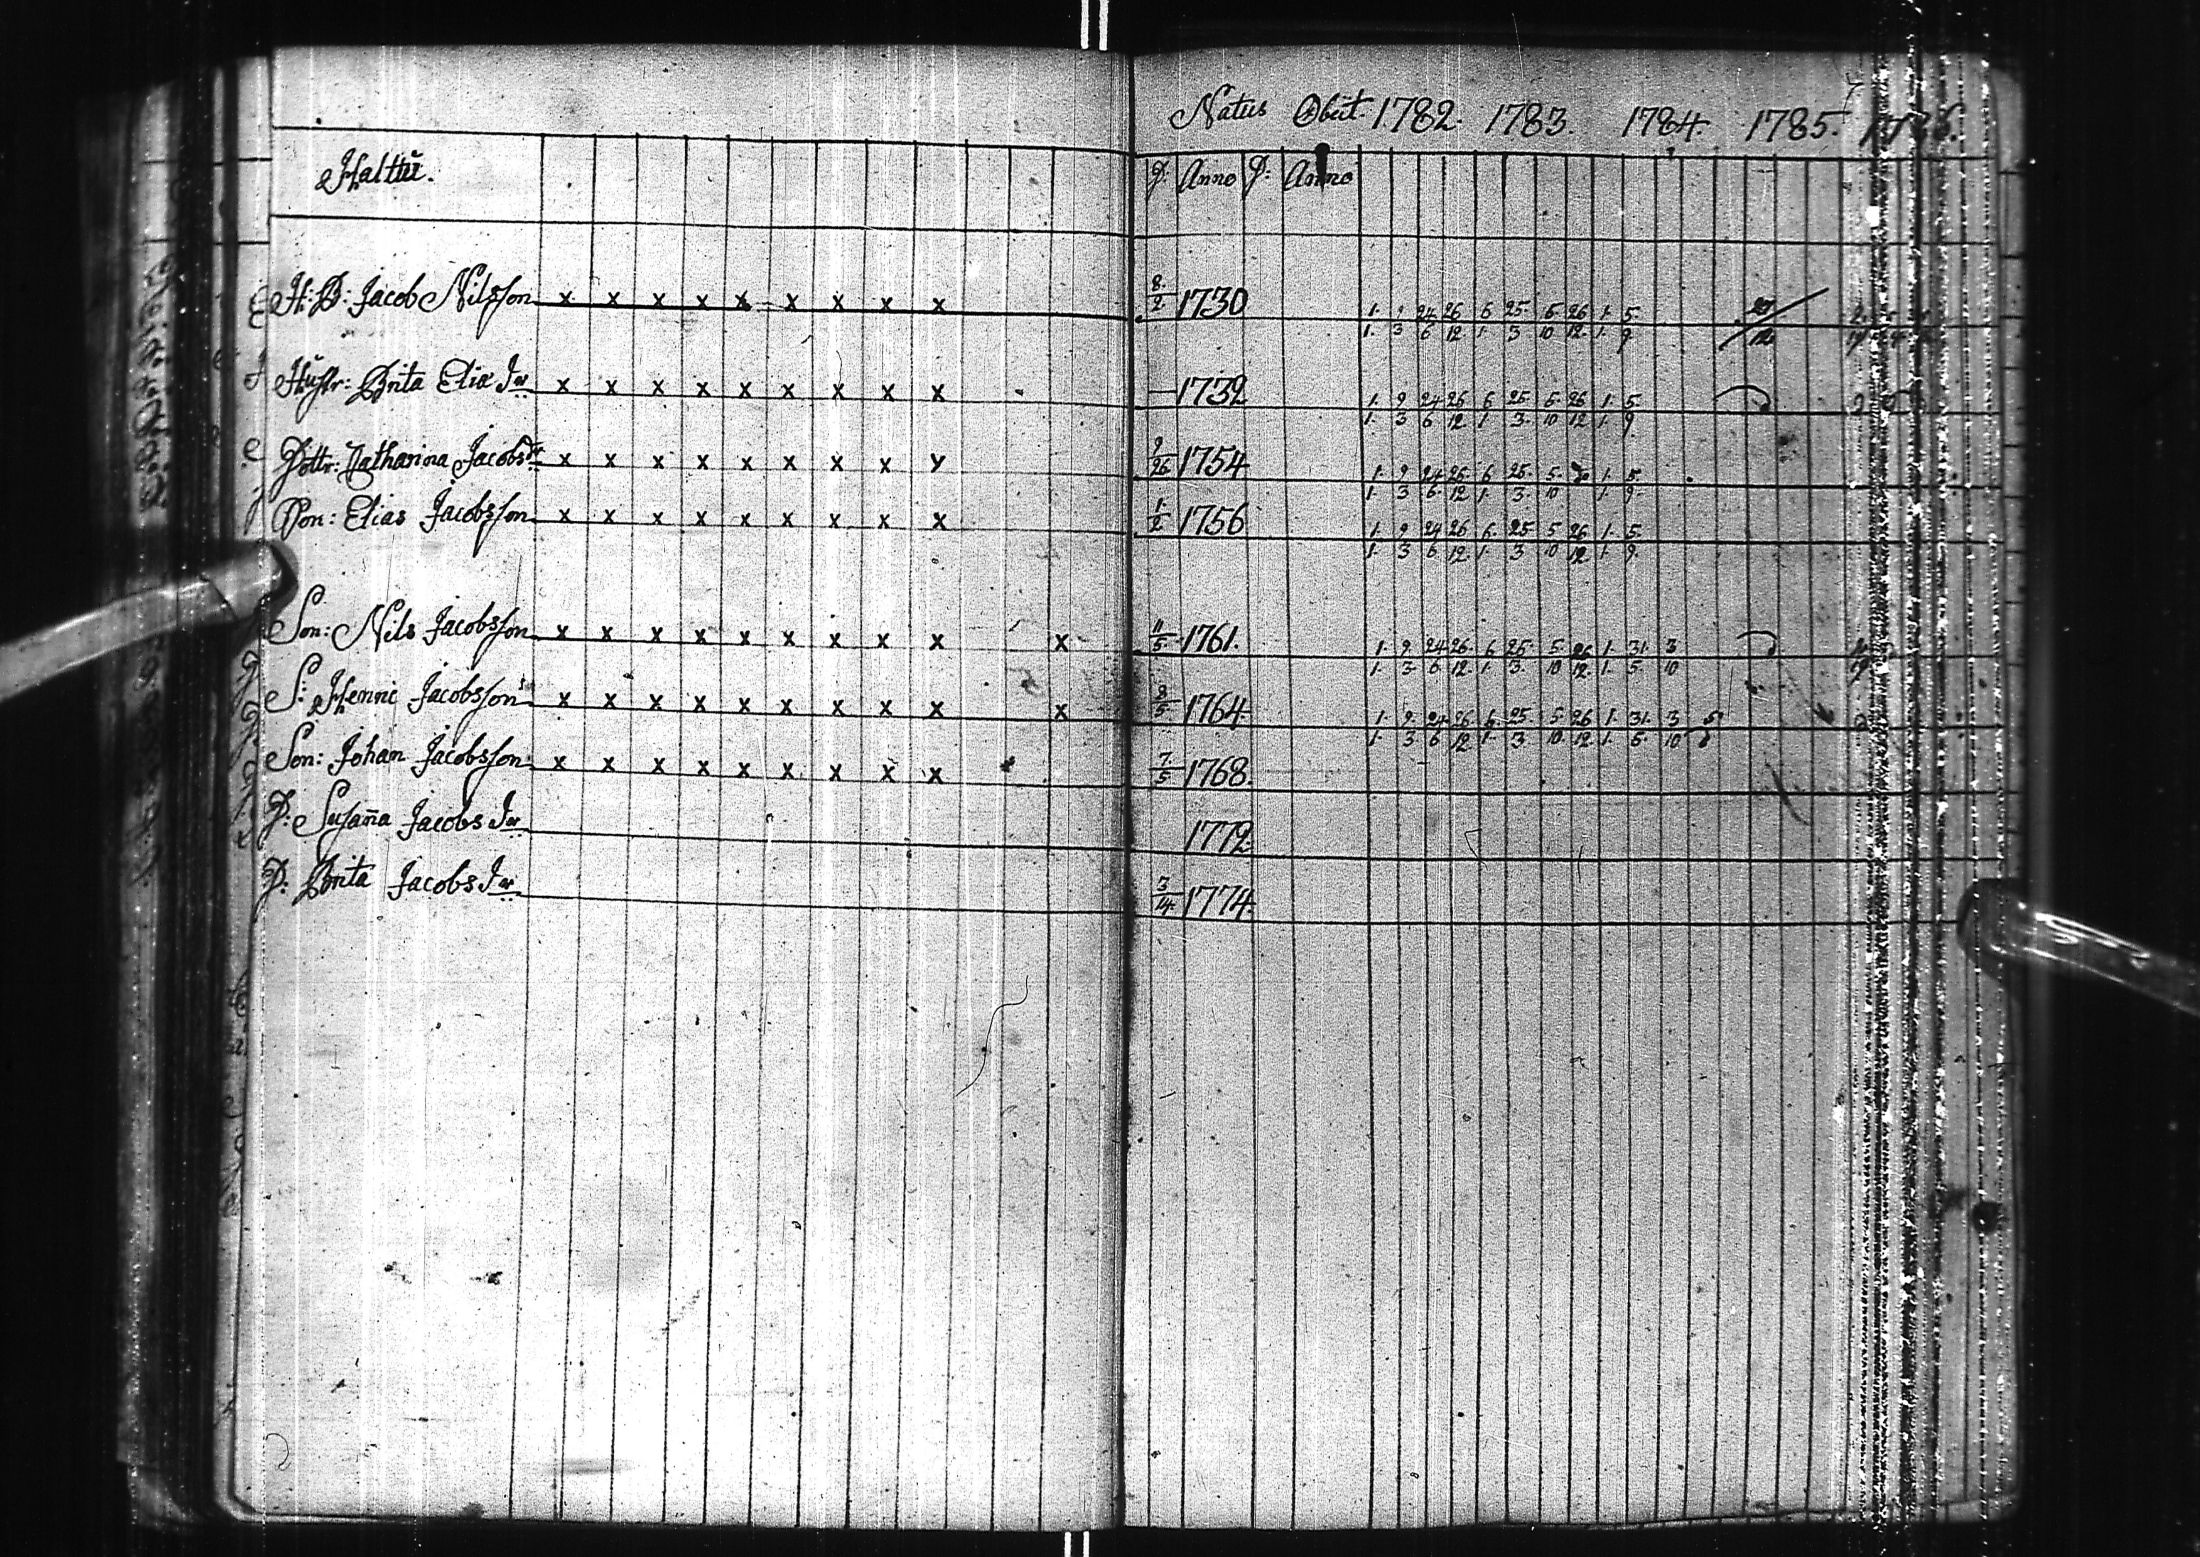 Natus Obiit. 1782. 1783. 1784. 1785.
Halttu. D: Anno D: Anno
H:B: Jacob Nilsson x x x x x x x x x 8/2 1730 1/1 9/3 24/6 26/12 6/1 25/3 5/10 26/12 1/1 5/9 27/12
Hustr: Brita Eliæ Dr x x x x x x x x x — 1732 1/1 9/3 24/6 26/12 6/1 25/3 5/10 26/12 1/1 5/9
Dottr: Catharina Jacobs Dr x x x x x x x x x 9/26 1754 1/1 9/3 24/6 26/12 6/1 25/3 5/10 1/1 5/9
Son: Elias Jacobsson x x x x x x x x x 1/2 1756 1/1 9/3 24/6 26/12 6/1 25/3 5/10 26/12 1/1 5/9
Son: Nils Jacobsson x x x x x x x x x x 11/5 1761. 1/1 9/3 24/6 26/12 6/1 25/3 5/10 26/12 1/1 31/5 3/10
S: Henric Jacobsson x x x x x x x x x x 8/5 1764 1/1 9/3 24/6 26/12 6/1 25/3 5/10 26/12 1/1 31/5 3/10
Son: Johan Jacobsson x x x x x x x x x 7/5 1768.
D: Susaña Jacobs Dr 1772.
D: Brita Jacobs Dr 3/14 1774.